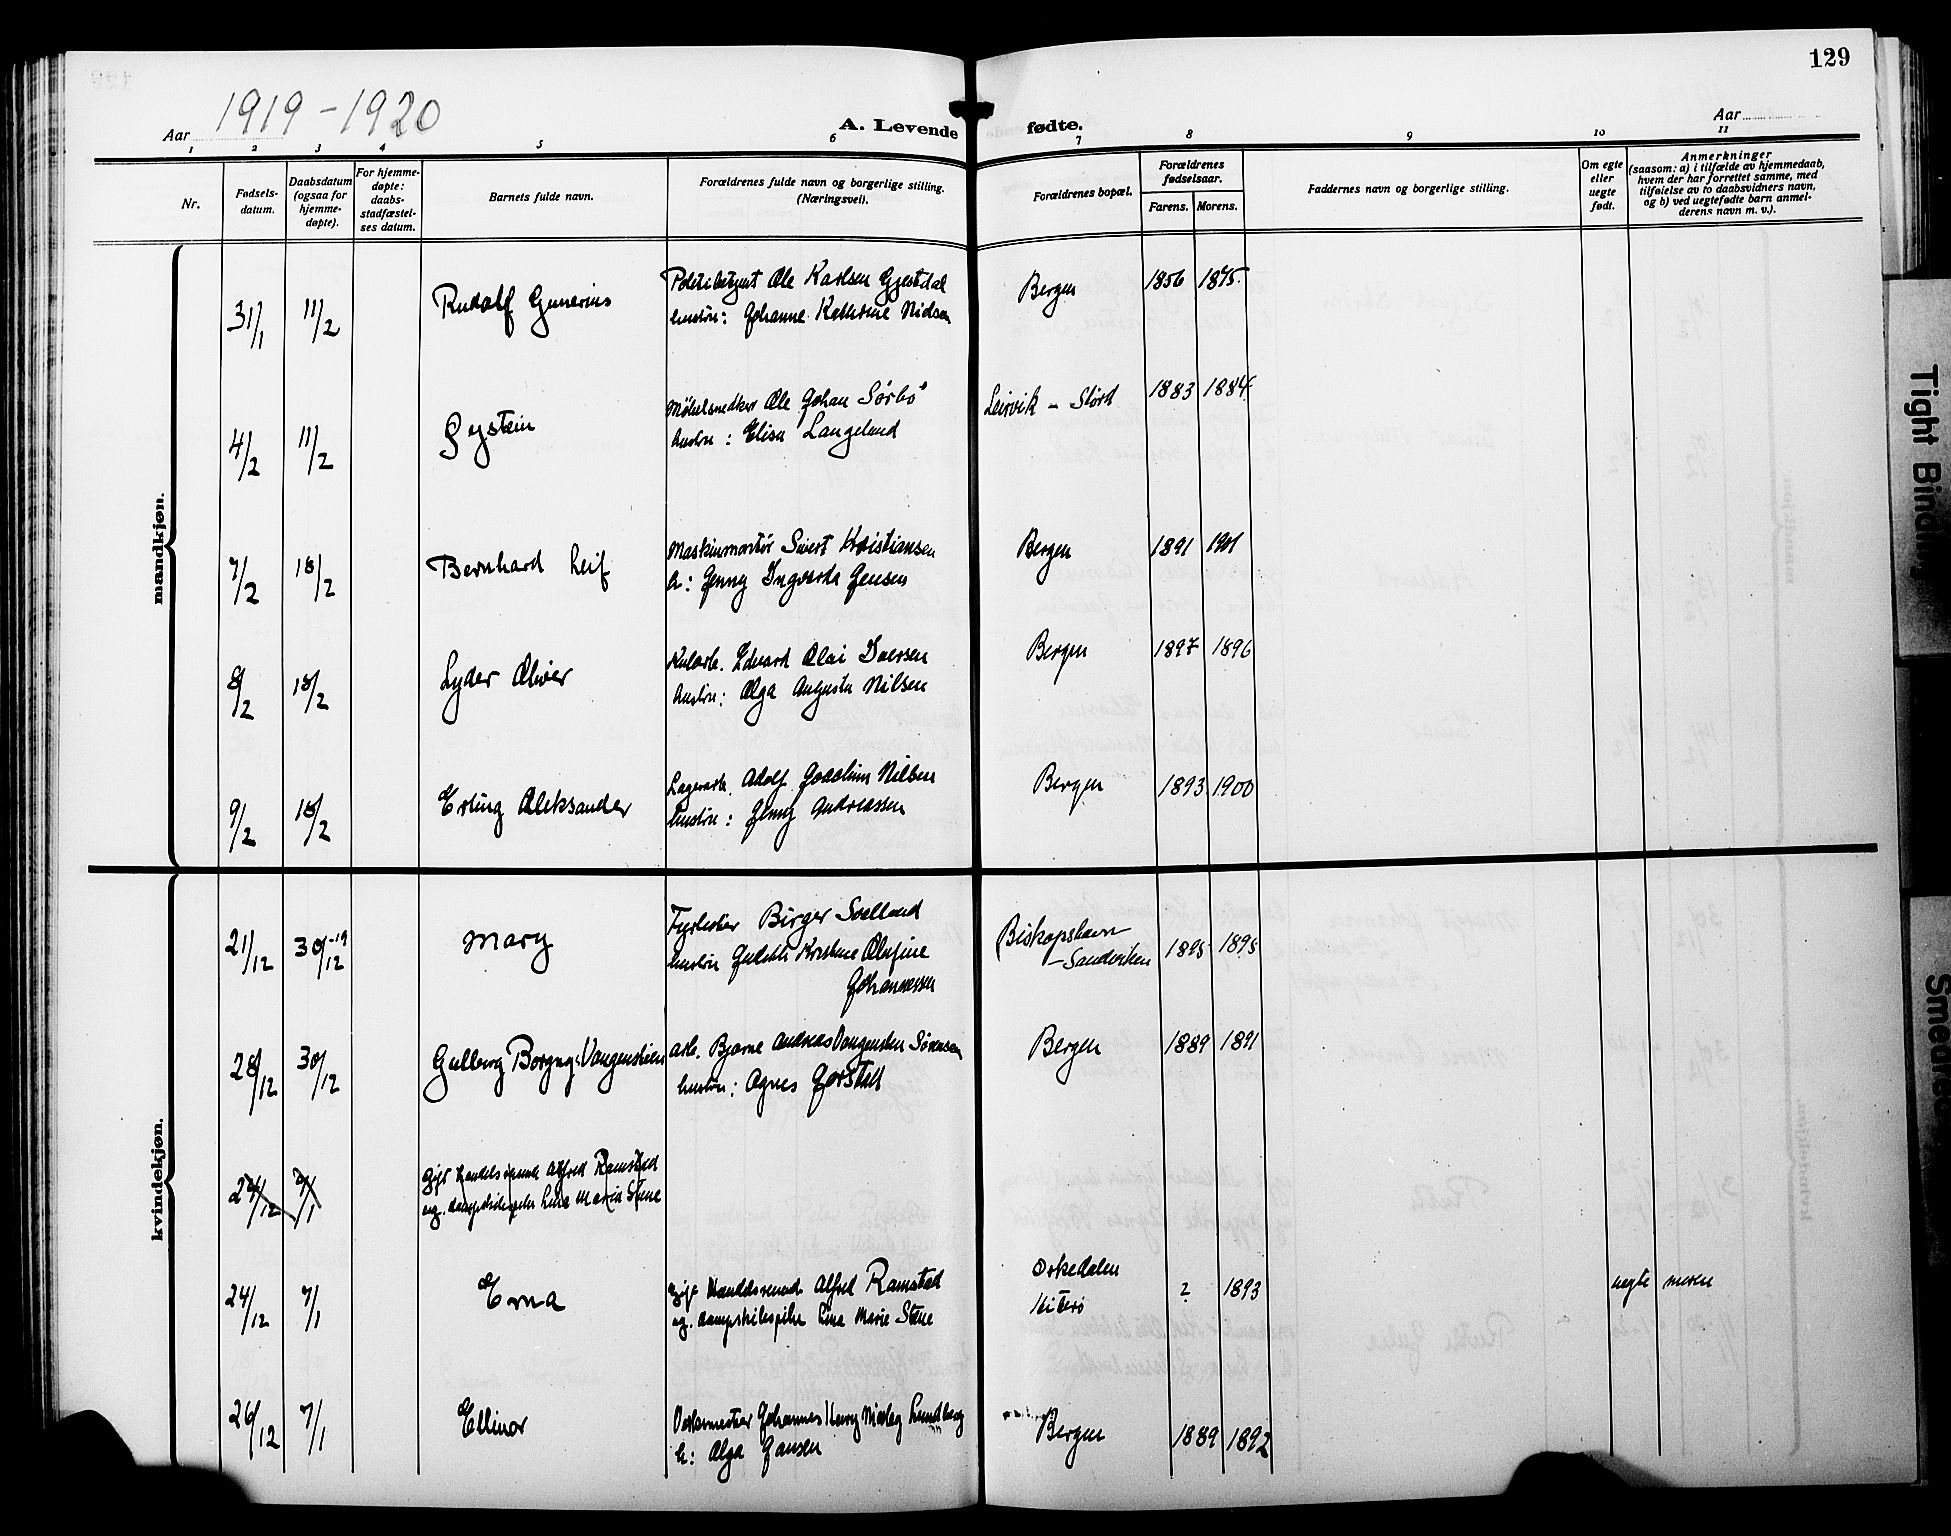 129
Aar 1919-1920
A. Levende fødte.
Aar
1 2 3 4 5 6 7 8 9 10 11
Nr.
Fødsels-
datum.
Daabsdatum
(ogsaa for
hjemme-
døpte).
For hjemme-
døpte:
daabs-
stadfæstel-
ses datum.
Barnets fulde navn.
Forældrenes fulde navn og borgerlige stilling.
(Næringsvei).
Forældrenes bopæl.
Forældrenes
fødselsaar.
Farens. Morens.
Faddernes navn og borgerlige stilling.
Om egte
eller
uegte
født.
Anmerkninger
(saasom: a) i tilfælde av hjemmedaab,
hvem der har forrettet samme, med
tilføielse av to daabsvidners navn,
og b) ved uegtefødte barn anmel-
derens navn m. v.).
mandkjøn.
31/1 11/2 Rudolf Gunerius Politibetjent Ole Karlsen Gjestdal Bergen 1856 1875
hustru: Johanne Kathrine Nielsen
4/2 11/2 Øystein Møbelsnedker Ole Johan Sørbø Leirvik - Stord 1883 1884
hustru: Elisa Langeland
7/2 18/2 Bernhard Leif Maskinmontør Sivert Kristiansen Bergen 1891 1901
h: Jenny Ingvarda Jensen
8/2 18/2 Lyder Oliver Kularb. Edvard Olai Iversen Bergen 1897 1896
hustru: Olga Augusta Nilsen
9/2 18/2 Erling Aleksander Lagerarb. Adolf Joachim Nilsen Bergen 1893 1900
hustru: Jenny Andreassen
kvindekjøn.
21/12 30/12-19 Mary Fyrbøter Birger Soelland Biskopshavn 1895 1895
- Sandviken
hustru Kristine Olufine
Johannessen
28/12 30/12 Gulborg Borgny Vangensteen arb. Bjarne Andreas Vangensten Sørensen Bergen 1889 1891
hustru: Agnes
24/12 7/1 gift Alfred Ramstad
ug. Lina Maria Stene
24/12 7/1 Erna gift Alfred Ramstad Orkedalen ? 1893 uegte moren
ug. Lina Marie Stene Hiterø
26/12 7/1 Ellinor Johannes Henry Lundberg Bergen 1889 1892
h: Olga Jansen
Tight Binding